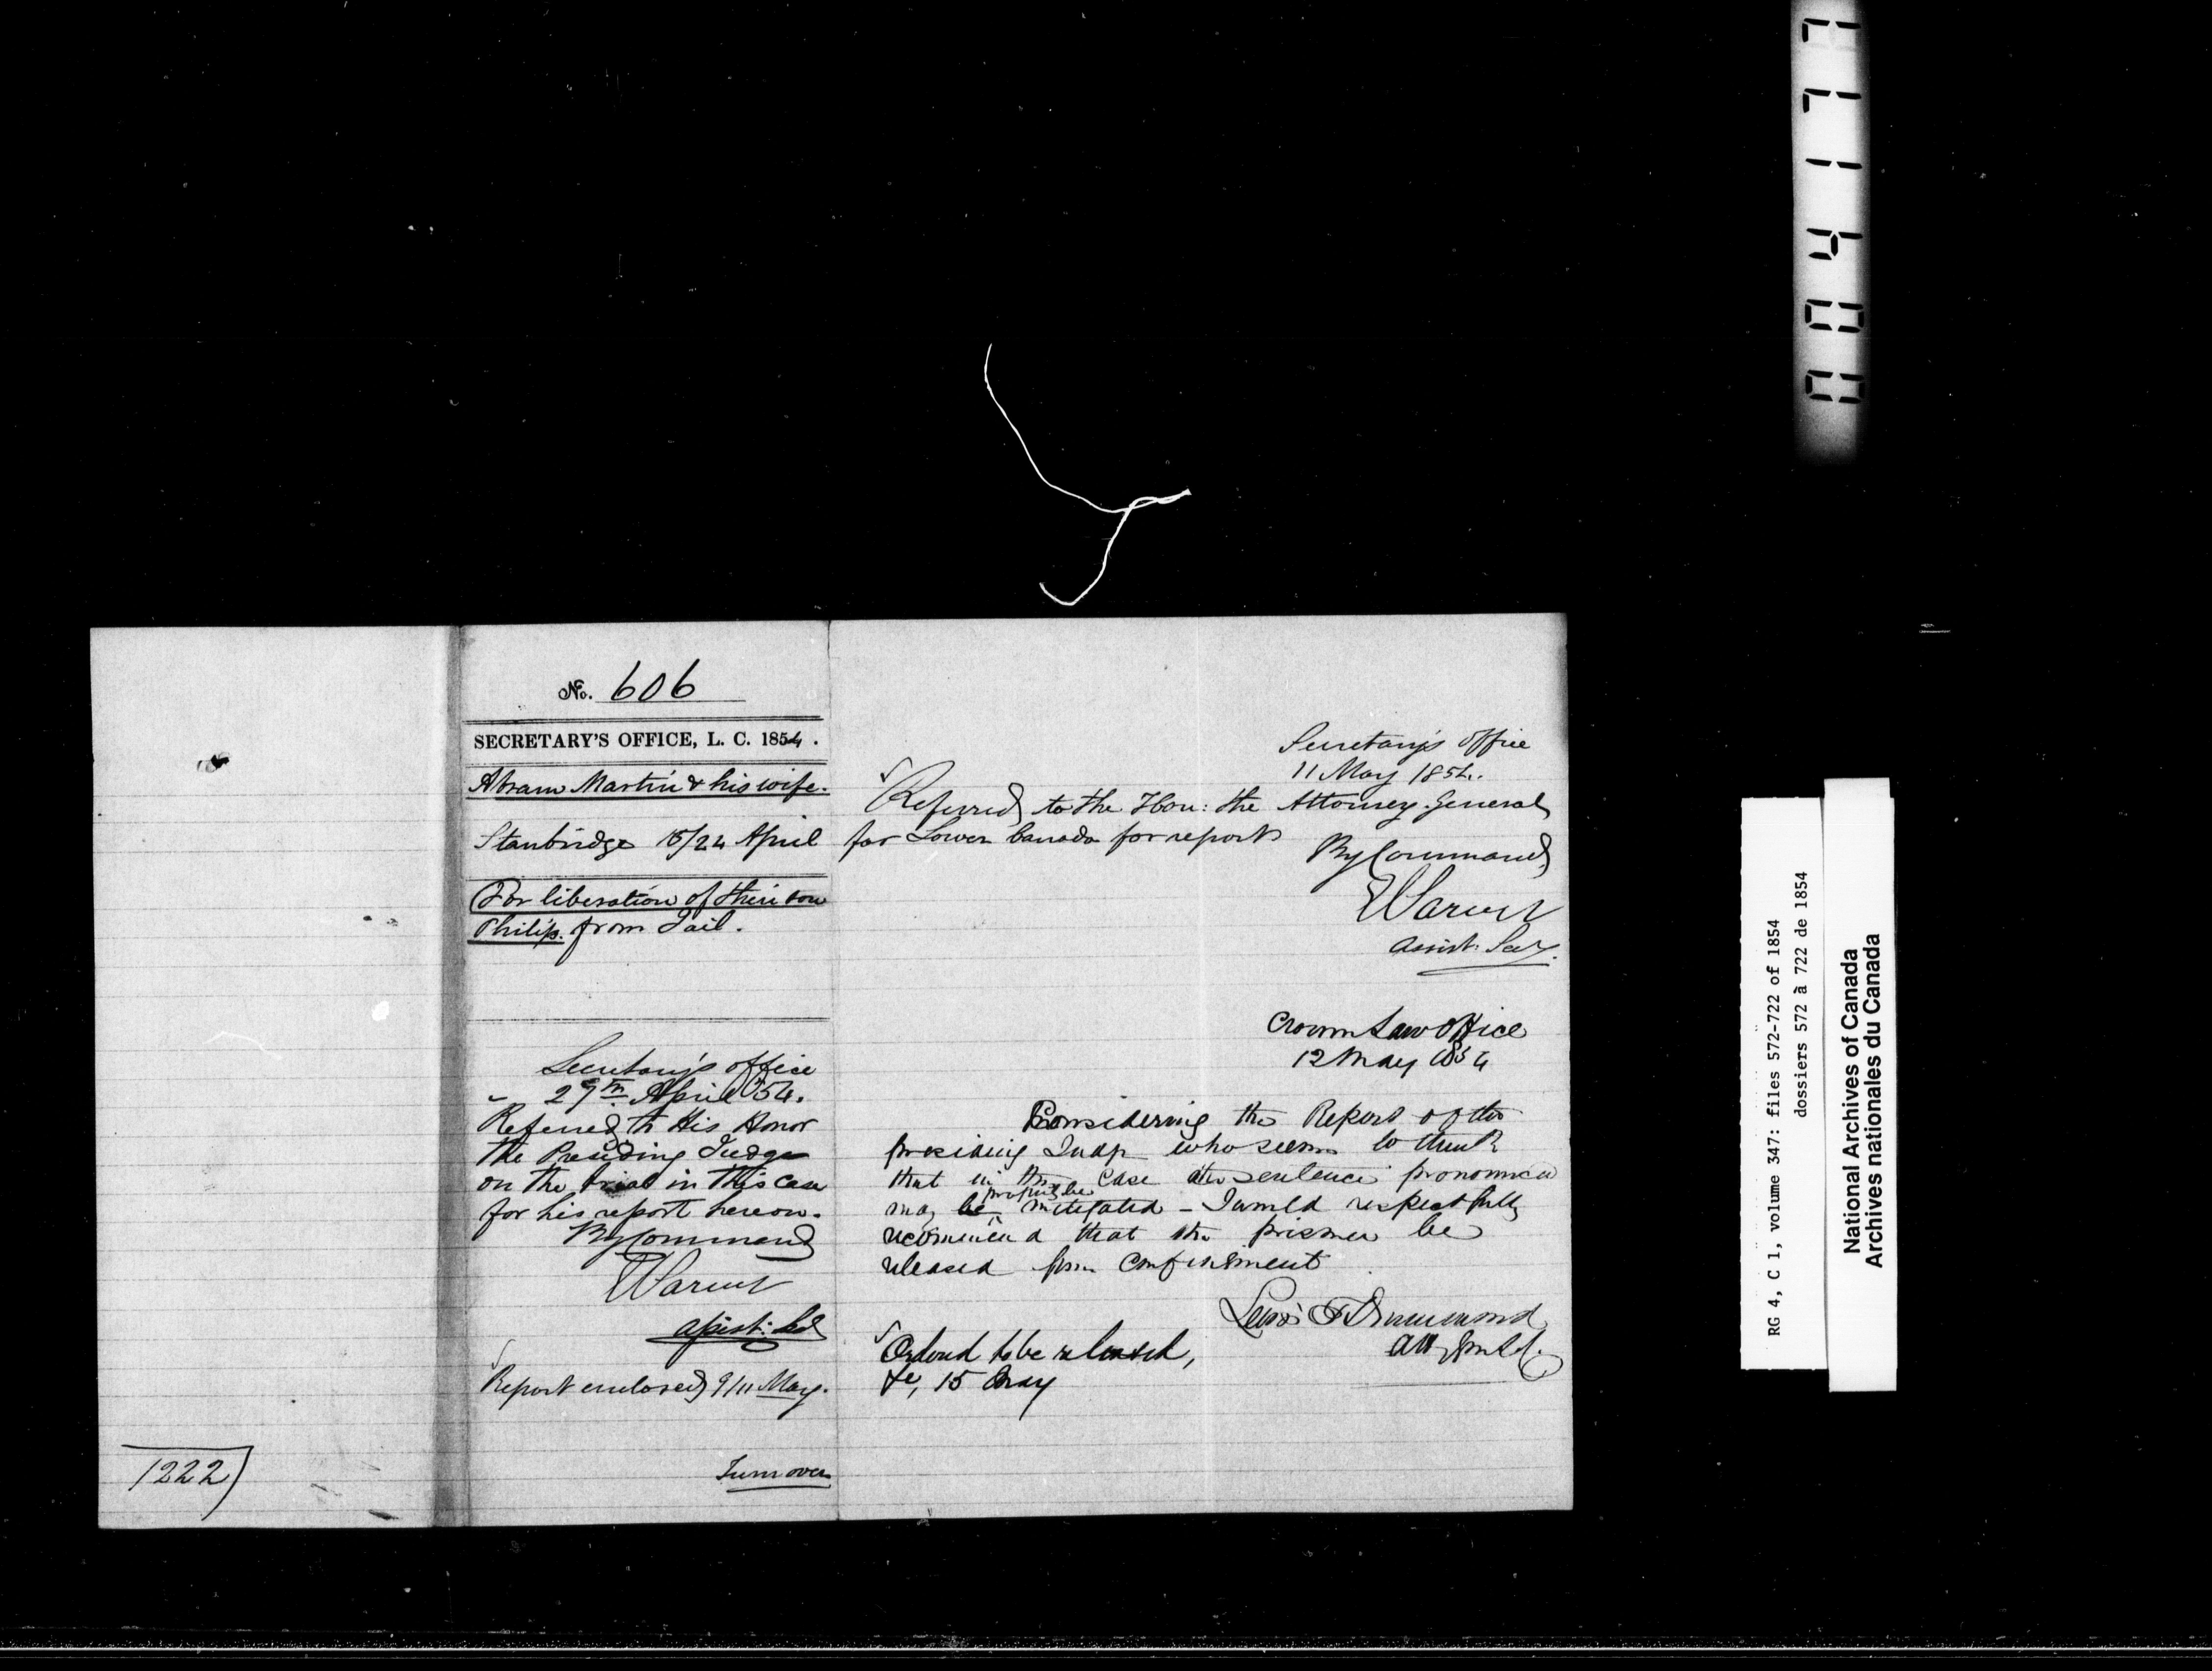 No. 606
SECRETARY'S OFFICE, L. C. 1854.
Abram Martin & his wife.
Stanbridge 15/24 April
For liberation of their son
Philip from Jail.
Secretary's office
29th April 54.
Referred to His Honor
the Presiding Judge
on the trial in this case
for his report hereon.
By Command
Assist: Sec
Report enclosed 9/11 May.
Turn over
1222
Secretary's office
11 May 1854.
Referred to the Hon: the Attorney General
for Lower Canada for report
By Command
Assist. Secy.
Crown Law Office
12 May 1854
Considering the Report of the
presiding Judge who seems to think
that in this case the sentence pronounced
may be properly be mitigated - I would respectfully
recommend that the prisoner be
released from confinement
Lewis T Drummond
Atty Genl
Ordered to be released,
&c, 15 May
RG 4, C 1, volume 347: files 572-722 of 1854
dossiers 572 à 722 de 1854
National Archives of Canada
Archives nationales du Canada